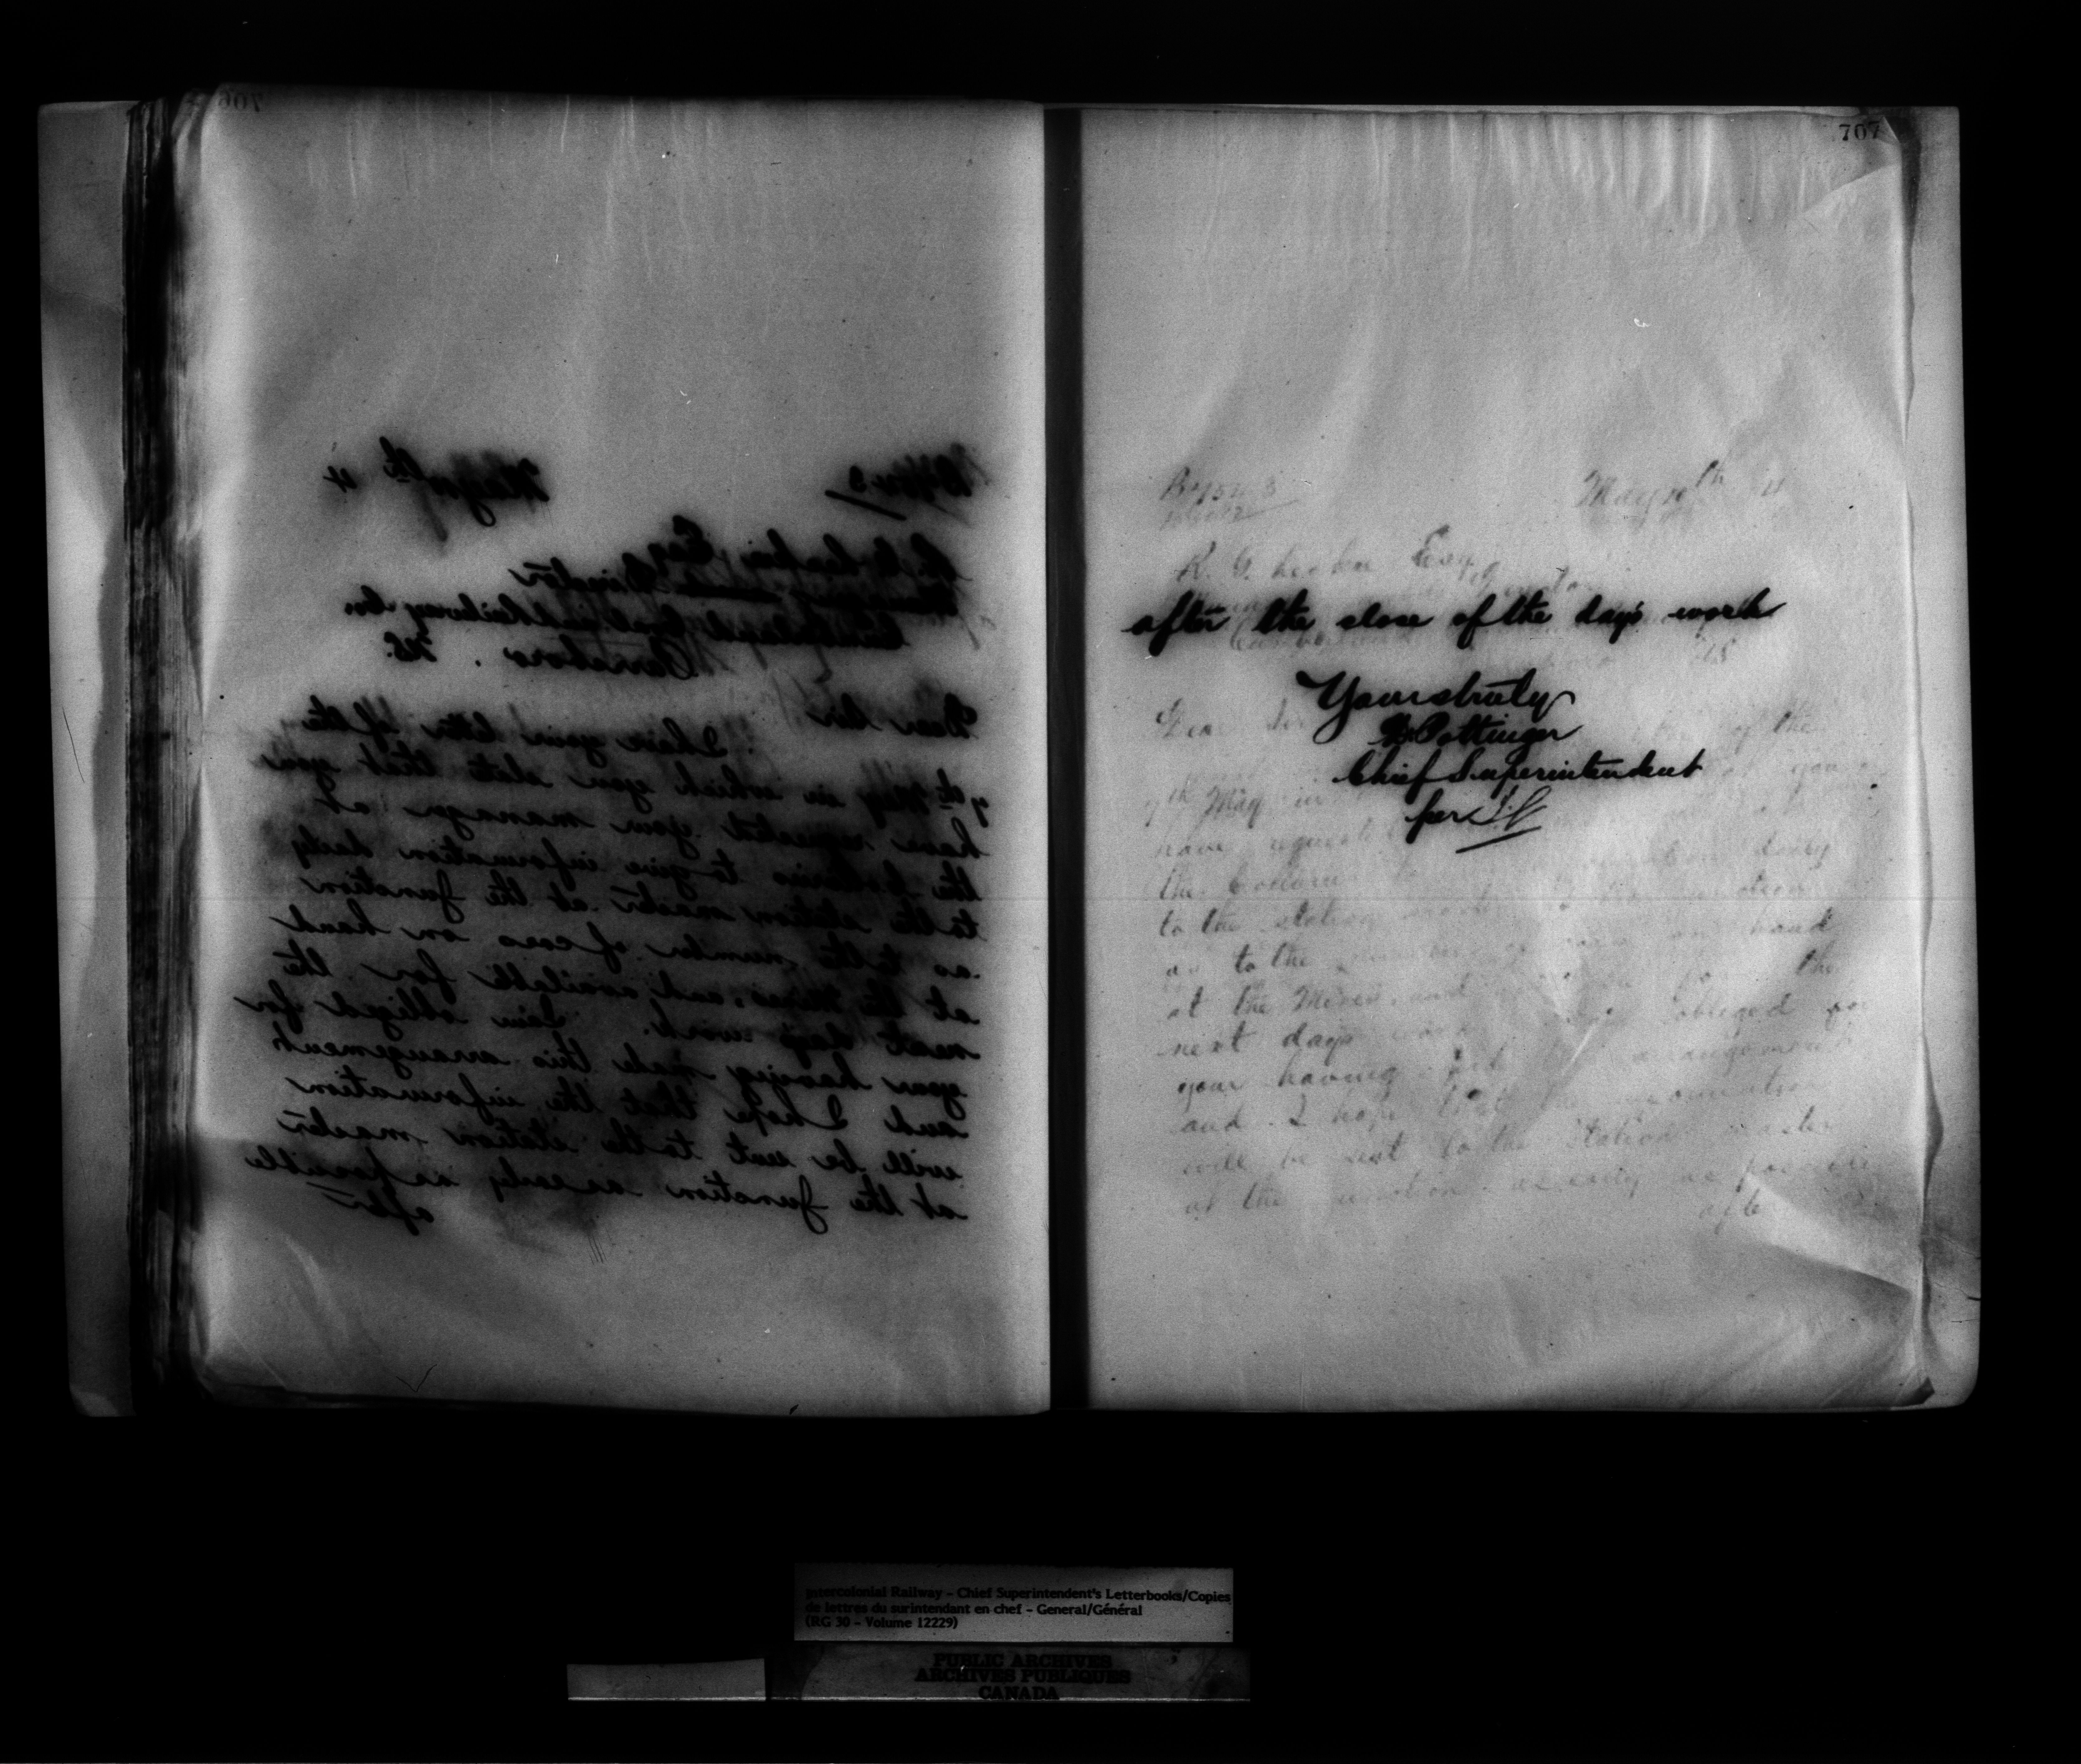 706
May 10th 4
R. G. Leckie Esq
Managing Director
Cumberland Coal and Railway Co
Parrsboro. NS.
Dear Sir
I have your letter of the
7th May in which you state that you
have requested your manager at
the Collieries to give information daily
to the station master at the Junction
as to the number of cars on hand
at the Mines, and available for the
next days work. I am obliged for
your having made this arrangement
and I hope that the information
will be sent to the station master
at the Junction as early as possible
after
707
after the close of the day's work
Yours truly
D Pottinger
Chief Superintendent
per
Intercolonial Railway - Chief Superintendent's Letterbooks/Copies
de lettres du surintendant en chef - General/Général
(RG 30 - Volume 12229)
PUBLIC ARCHIVES
ARCHIVES PUBLIQUES
CANADA